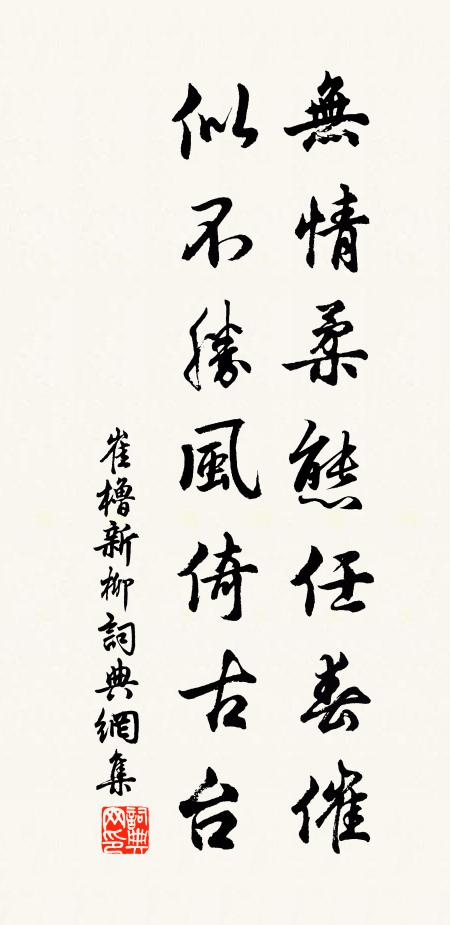 無情柔態任春催
似不勝風倚古台
崔櫓新柳詞典網集
詞典网印